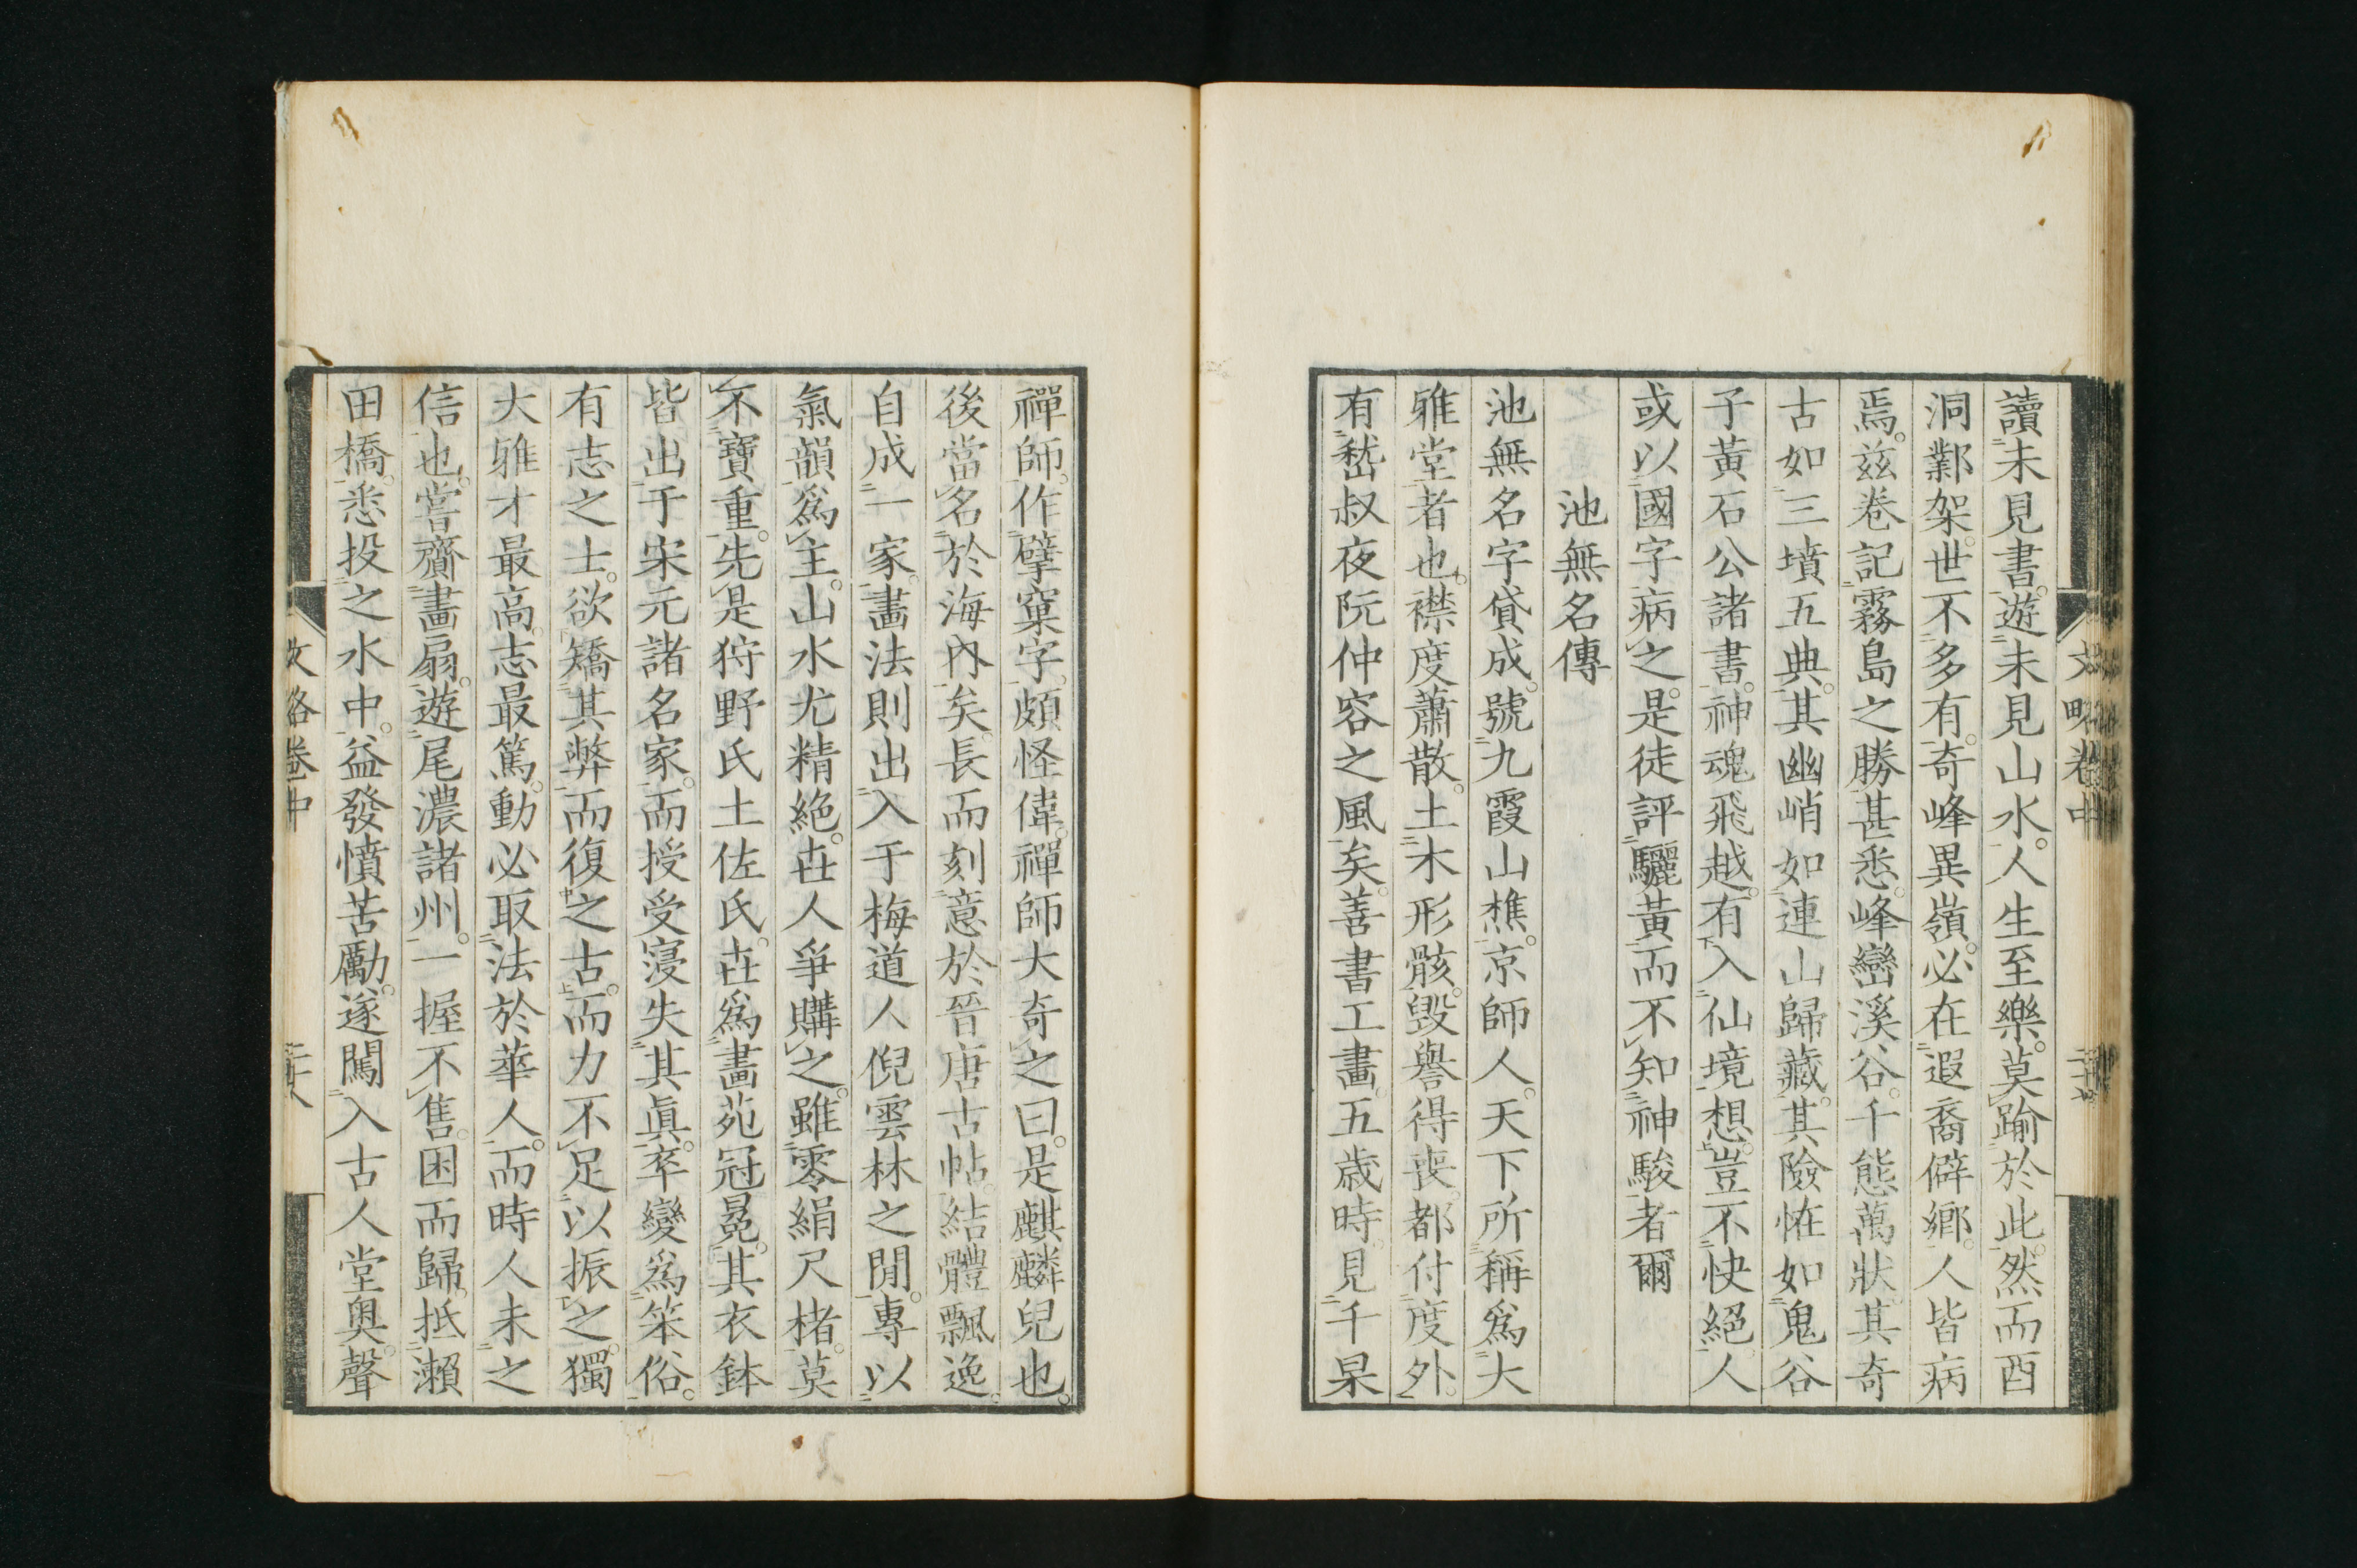 讀未見書。遊未見山水。人生至樂。莫踰於此。然而酉
洞鄴架。世不多有。奇峰異嶺。必在遐裔僻鄉。人皆病
焉。茲卷記霧島之勝甚悉。峰巒溪谷。千態萬狀。其奇
古如三墳五典。其幽峭如連山歸藏。其險恠如鬼谷
子黃石公諸書。神魂飛越。有入仙境想。豈不快絕人
或以國字病之。是徒評驪黃而不知神駿者爾
池無名傳
池無名字貸成。號九霞山樵。京師人。天下所稱爲大
雅堂者也。襟度蕭散。土木形骸。毀譽得喪。都付度外。
有嵆叔夜阮仲容之風矣。善書工畫。五歲時。見千杲
文略卷中
禪師。作擘窠字。頗怪偉。禪師大奇之曰。是麒麟兒也。
後當名於海內矣。長而刻意於晉唐古帖。結體飄逸。
自成一家。畫法則出入于梅道人倪雲林之閒。專以
氣韻爲主。山水尤精絕。卋人爭購之。雖零絹尺楮。莫
不寶重。先是狩野氏土佐氏。卋爲畫苑冠冕。其衣鉢
皆出于宋元諸名家。而授受寖失其眞。卒變爲笨俗。
有志之士。欲矯其弊而復之古。而力不足以振之。獨
大雅才最高。志最篤。動必取法於華人。而時人未之
信也。嘗齎畫扇。遊尾濃諸州。一握不售。困而歸。抵瀨
田橋。悉投之水中。益發憤苦勵。遂闖入古人堂奧。聲
文略卷中